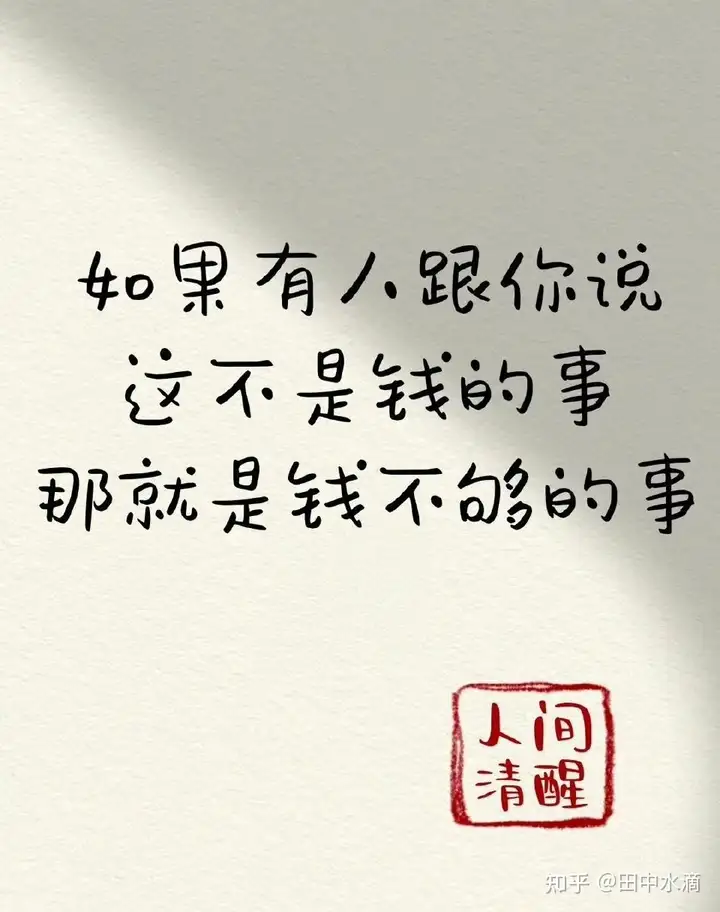 如果有人跟你说
这不是钱的事
那就是钱不够的事
人间
清醒
知乎 @田中水滴